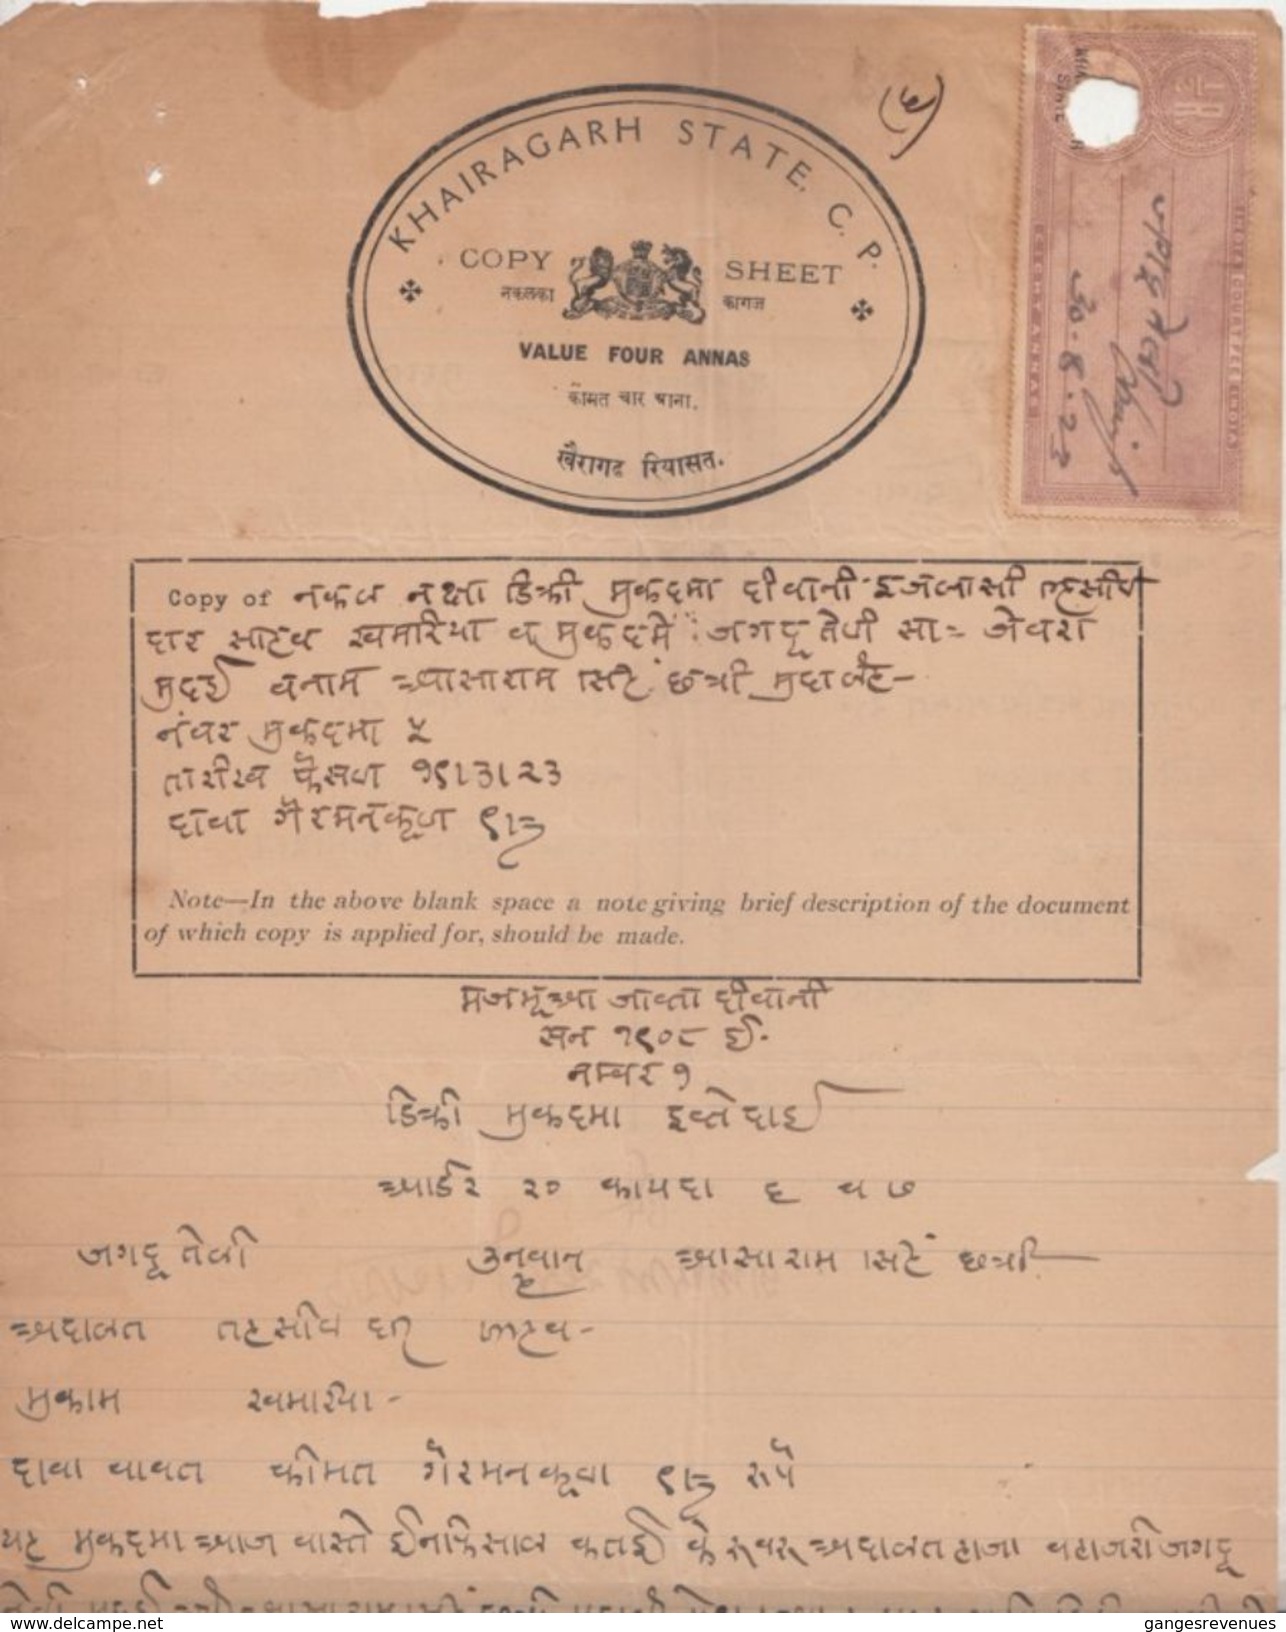 (६)
KHAIRAGARH STATE, C. P.
COPY SHEET
नकलका कागज
VALUE FOUR ANNAS
कीमत चार आना.
खैरागढ रियासत.
INDIA COURT FEE
EIGHT ANNAS
जगदू तेली
३०-८-२३
Copy of नकल नक्षा डिक्री मुकदमा दीवानी इजलासी तहसील
दार साहेब खमरिया व मुकदमें जगदू तेली सा= जेवरा
मुदई बनाम आसाराम सिंह छत्री मुदालेह-
नंबर मुकदमा ५
तारीख फैसला १९।३।२३
दावा गैरमनकूला
Note—In the above blank space a note giving brief description of the document
of which copy is applied for, should be made.
मजमूआ जाब्ता दीवानी
सन १९०८ ई.
नम्बर १
डिक्री मुकदमा इब्तेदाई
आर्डर २० कायदा ६ व ७
जगदू तेली उनवान आसाराम सिंह छत्री
अदालत तहसील दार साहेब-
मुकाम खमरिया-
दावा बाबत कीमत गैरमनकूला रुपे
यह मुकदमा आज वास्ते ईनफिसाल कतई के रूबरू अदालत हाजा बहाजरी जगदू
delcampe.net
gangesrevenues